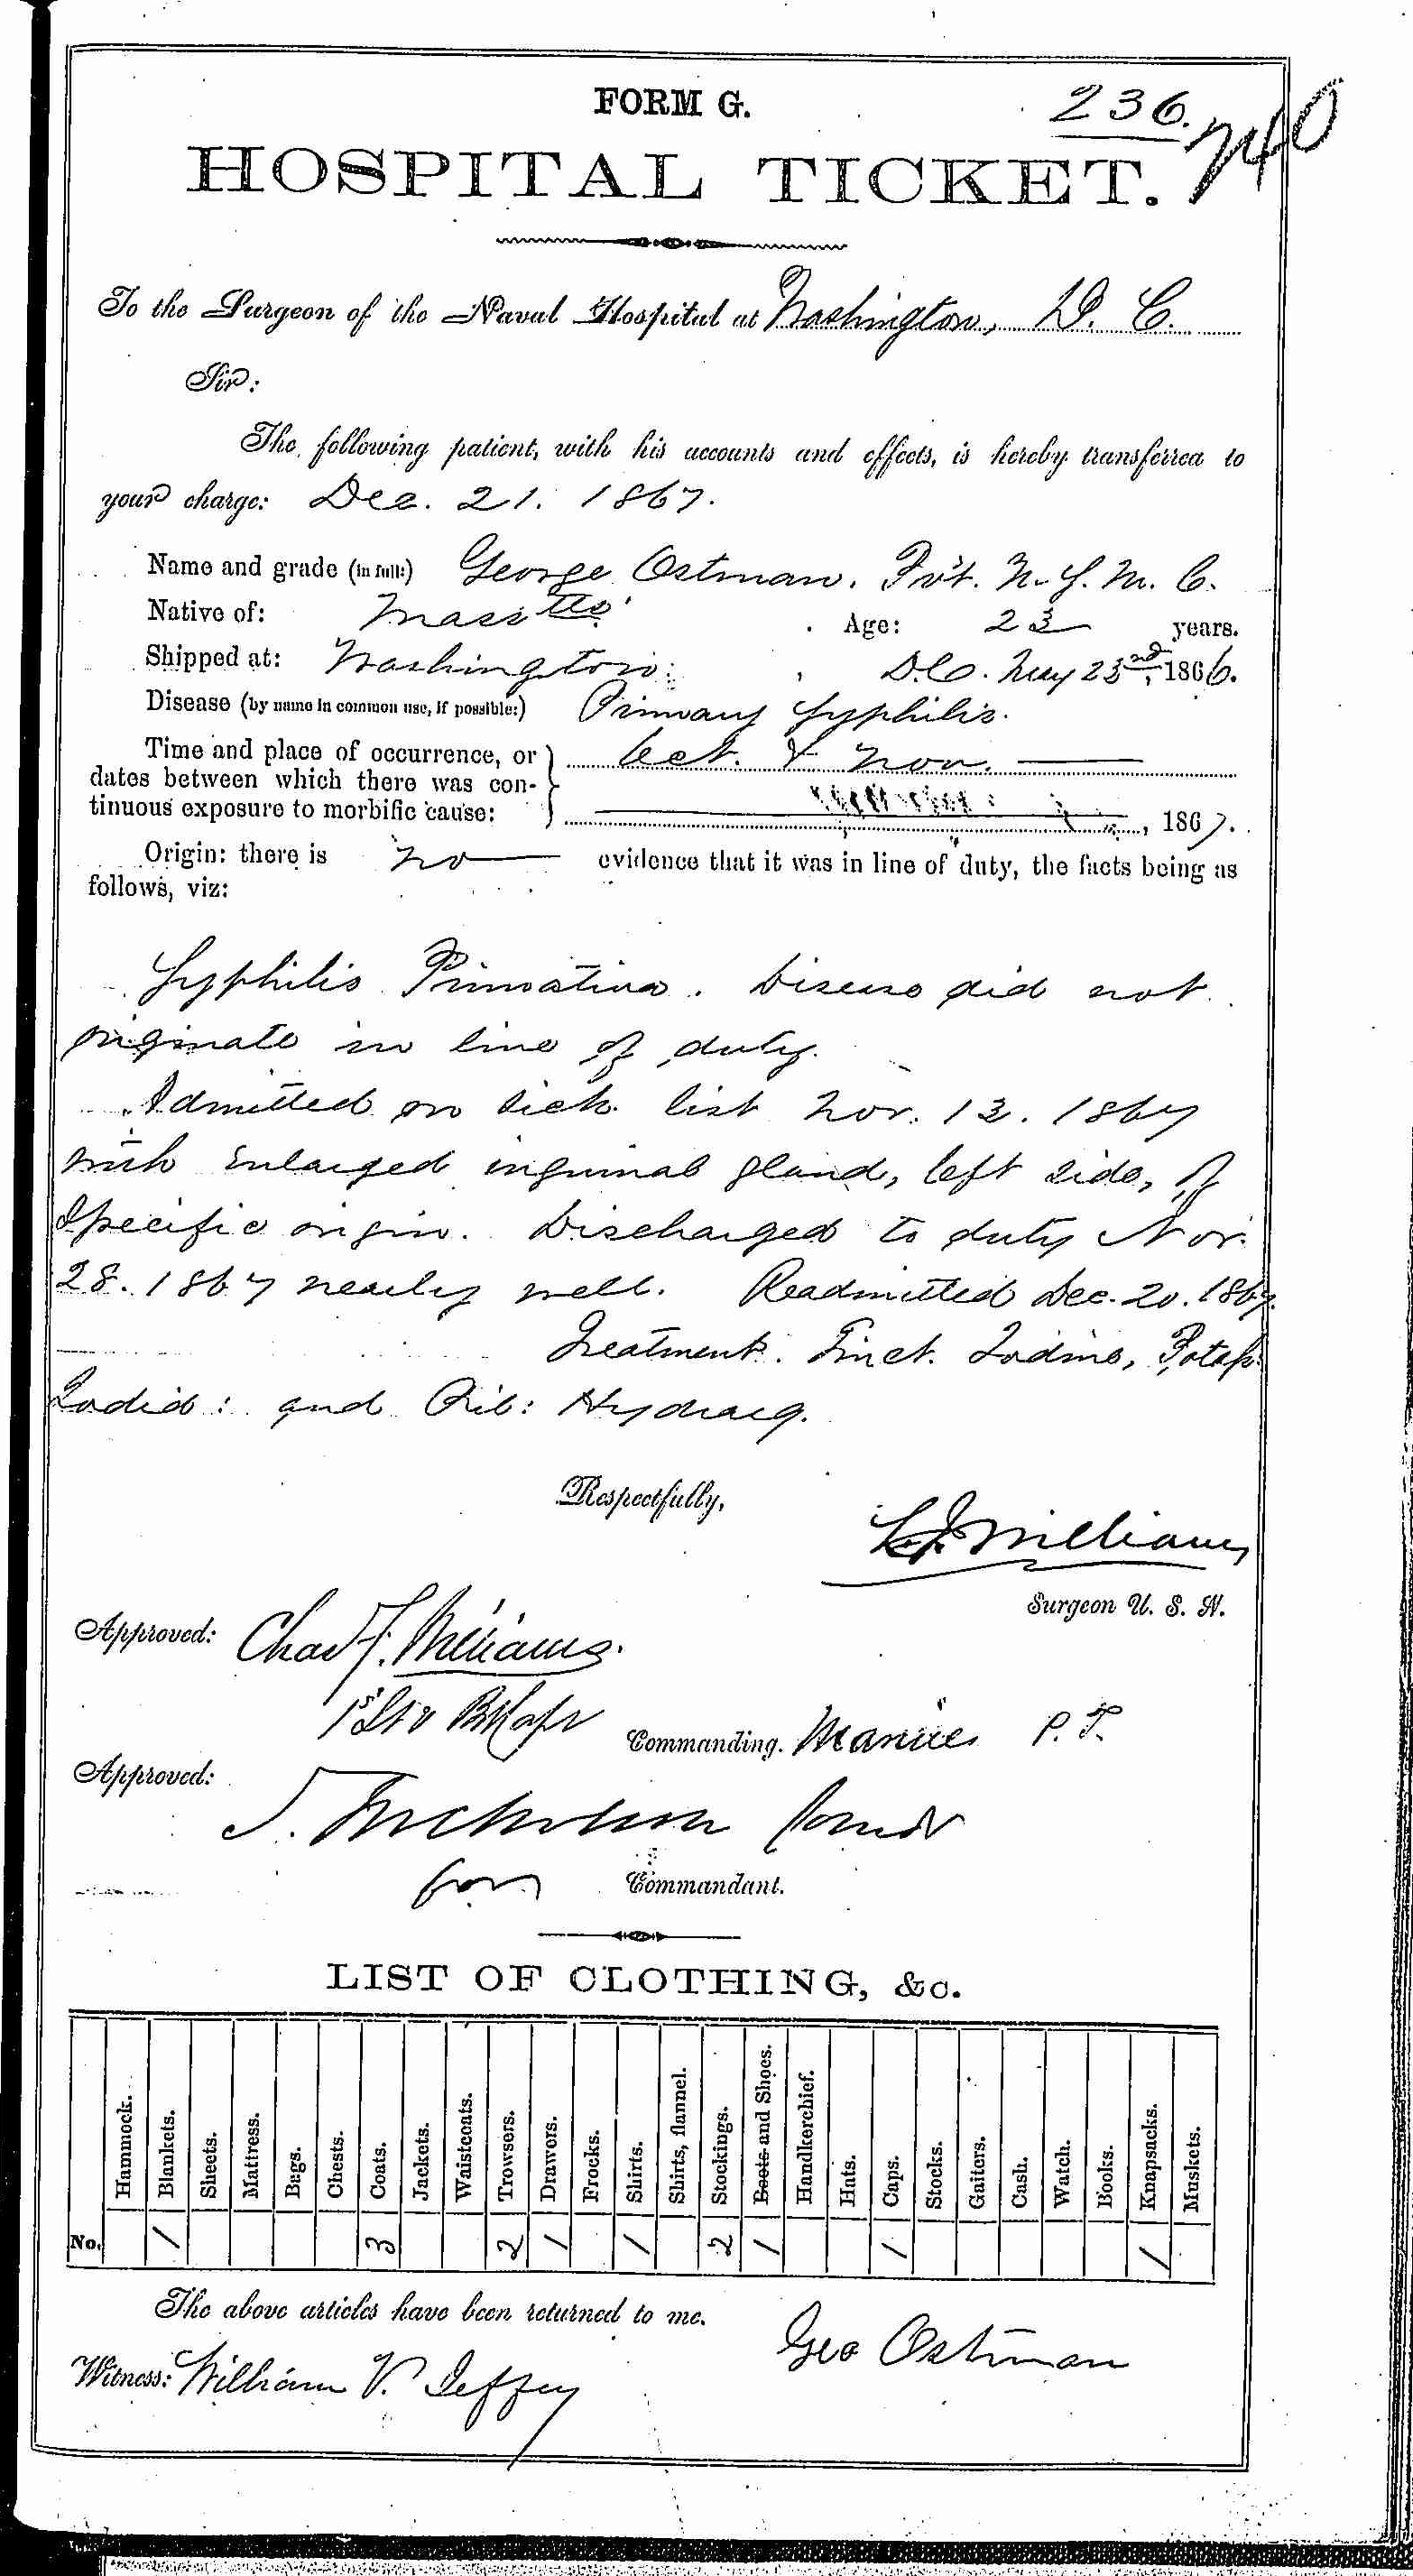 FORM G.
236.
740
HOSPITAL TICKET.
To the Surgeon of the Naval Hospital at Washington, D. C.
Sir:
The following patient, with his accounts and effects, is hereby transferred to
your charge: Dec. 21. 1867.
Name and grade (in full:) George Ostman. Pvt. U. S. M. C.
Native of: Masstts Age: 23 years.
Shipped at: Washington D.C. May 23rd, 1866.
Disease (by name in common use, if possible:) Primary Syphilis.
Time and place of occurrence, or Oct. & Nov.
dates between which there was con-
tinuous exposure to morbific cause: , 1867.
Origin: there is no evidence that it was in line of duty, the facts being as
follows, viz:
Syphilis Primativa. Disease did not
originate in line of duty.
Admitted on sick list Nov. 13. 1867
with enlarged inguinal gland, left side, of
Specific origin. Discharged to duty Nov.
28. 1867 nearly well. Readmitted Dec. 20. 1867.
Treatment. Tinct. Iodine, Potass:
Iodid: and Pil: Hydrarg.
Respectfully,
Williams
Surgeon U. S. N.
Approved: Chas F. Williams.
1st Lt & Bt Capt Commanding. Marines P. T.
Approved:
S. Nicholson Comdr
for Commandant.
LIST OF CLOTHING, &c.
Hammock. Blankets. Sheets. Mattress. Bags. Chests. Coats. Jackets. Waistcoats. Trowsers. Drawers. Frocks. Shirts. Shirts, flannel. Stockings. Boots and Shoes. Handkerchief. Hats. Caps. Stocks. Gaiters. Cash. Watch. Books. Knapsacks. Muskets.
No. 1 3 2 1 1 2 1 1 1
The above articles have been returned to me.
Geo Ostman
Witness: William V. Jeffey